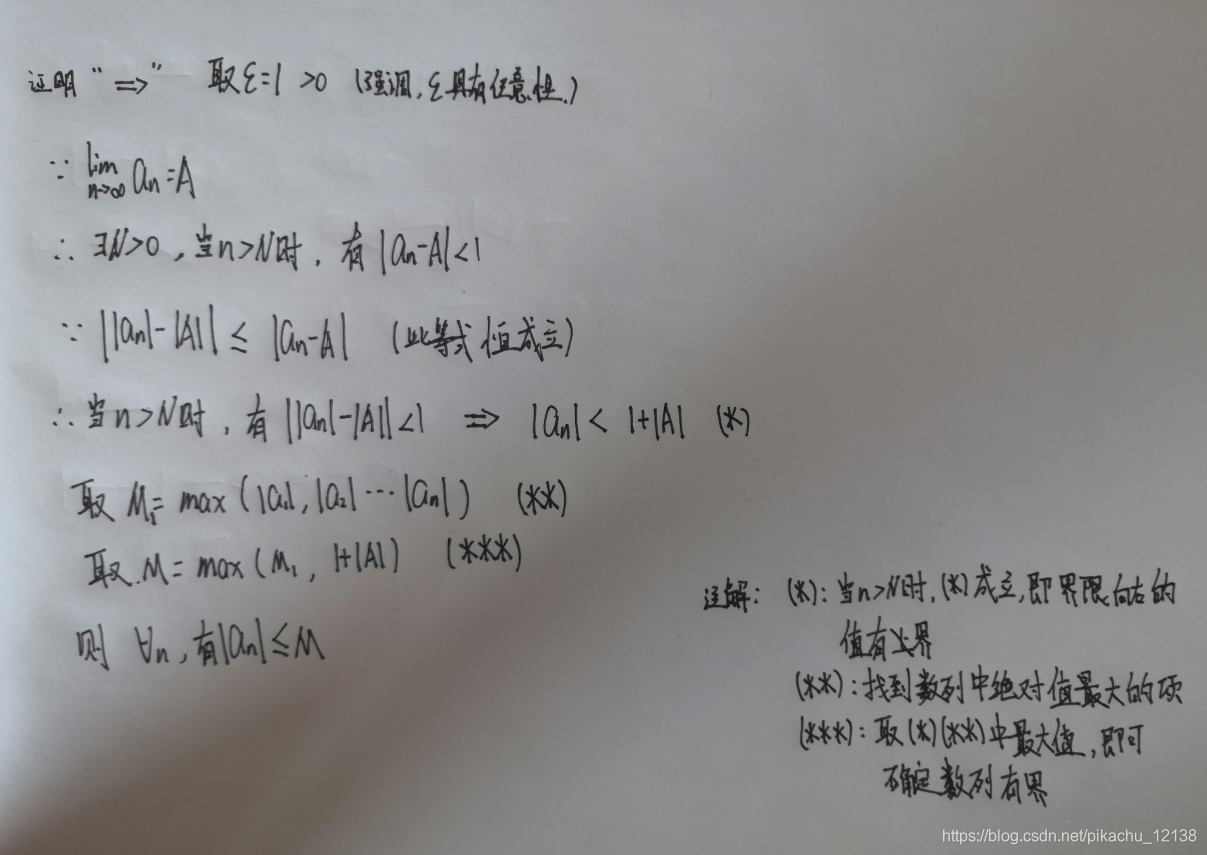 证明 "⇒" 取ε=1>0 (强调,ε具有任意性.)
∵ lim n→∞ an=A
∴ ∃N>0,当n>N时,有|an-A|<1
∵ ||an|-|A|| ≤ |an-A| (此等式恒成立)
∴ 当n>N时,有||an|-|A||<1 ⇒ |an|< 1+|A| (*)
取 M1= max(|a1|,|a2|…|an|) (**)
取.M= max(M1, 1+|A|) (***)
则 ∀n,有|an|≤M
注解: (*):当n>N时,(*)成立,即界限向右的
值有上界
(**):找到数列中绝对值最大的项
(***):取(*)(**)中最大值,即可
确定数列有界
https://blog.csdn.net/pikachu_12138